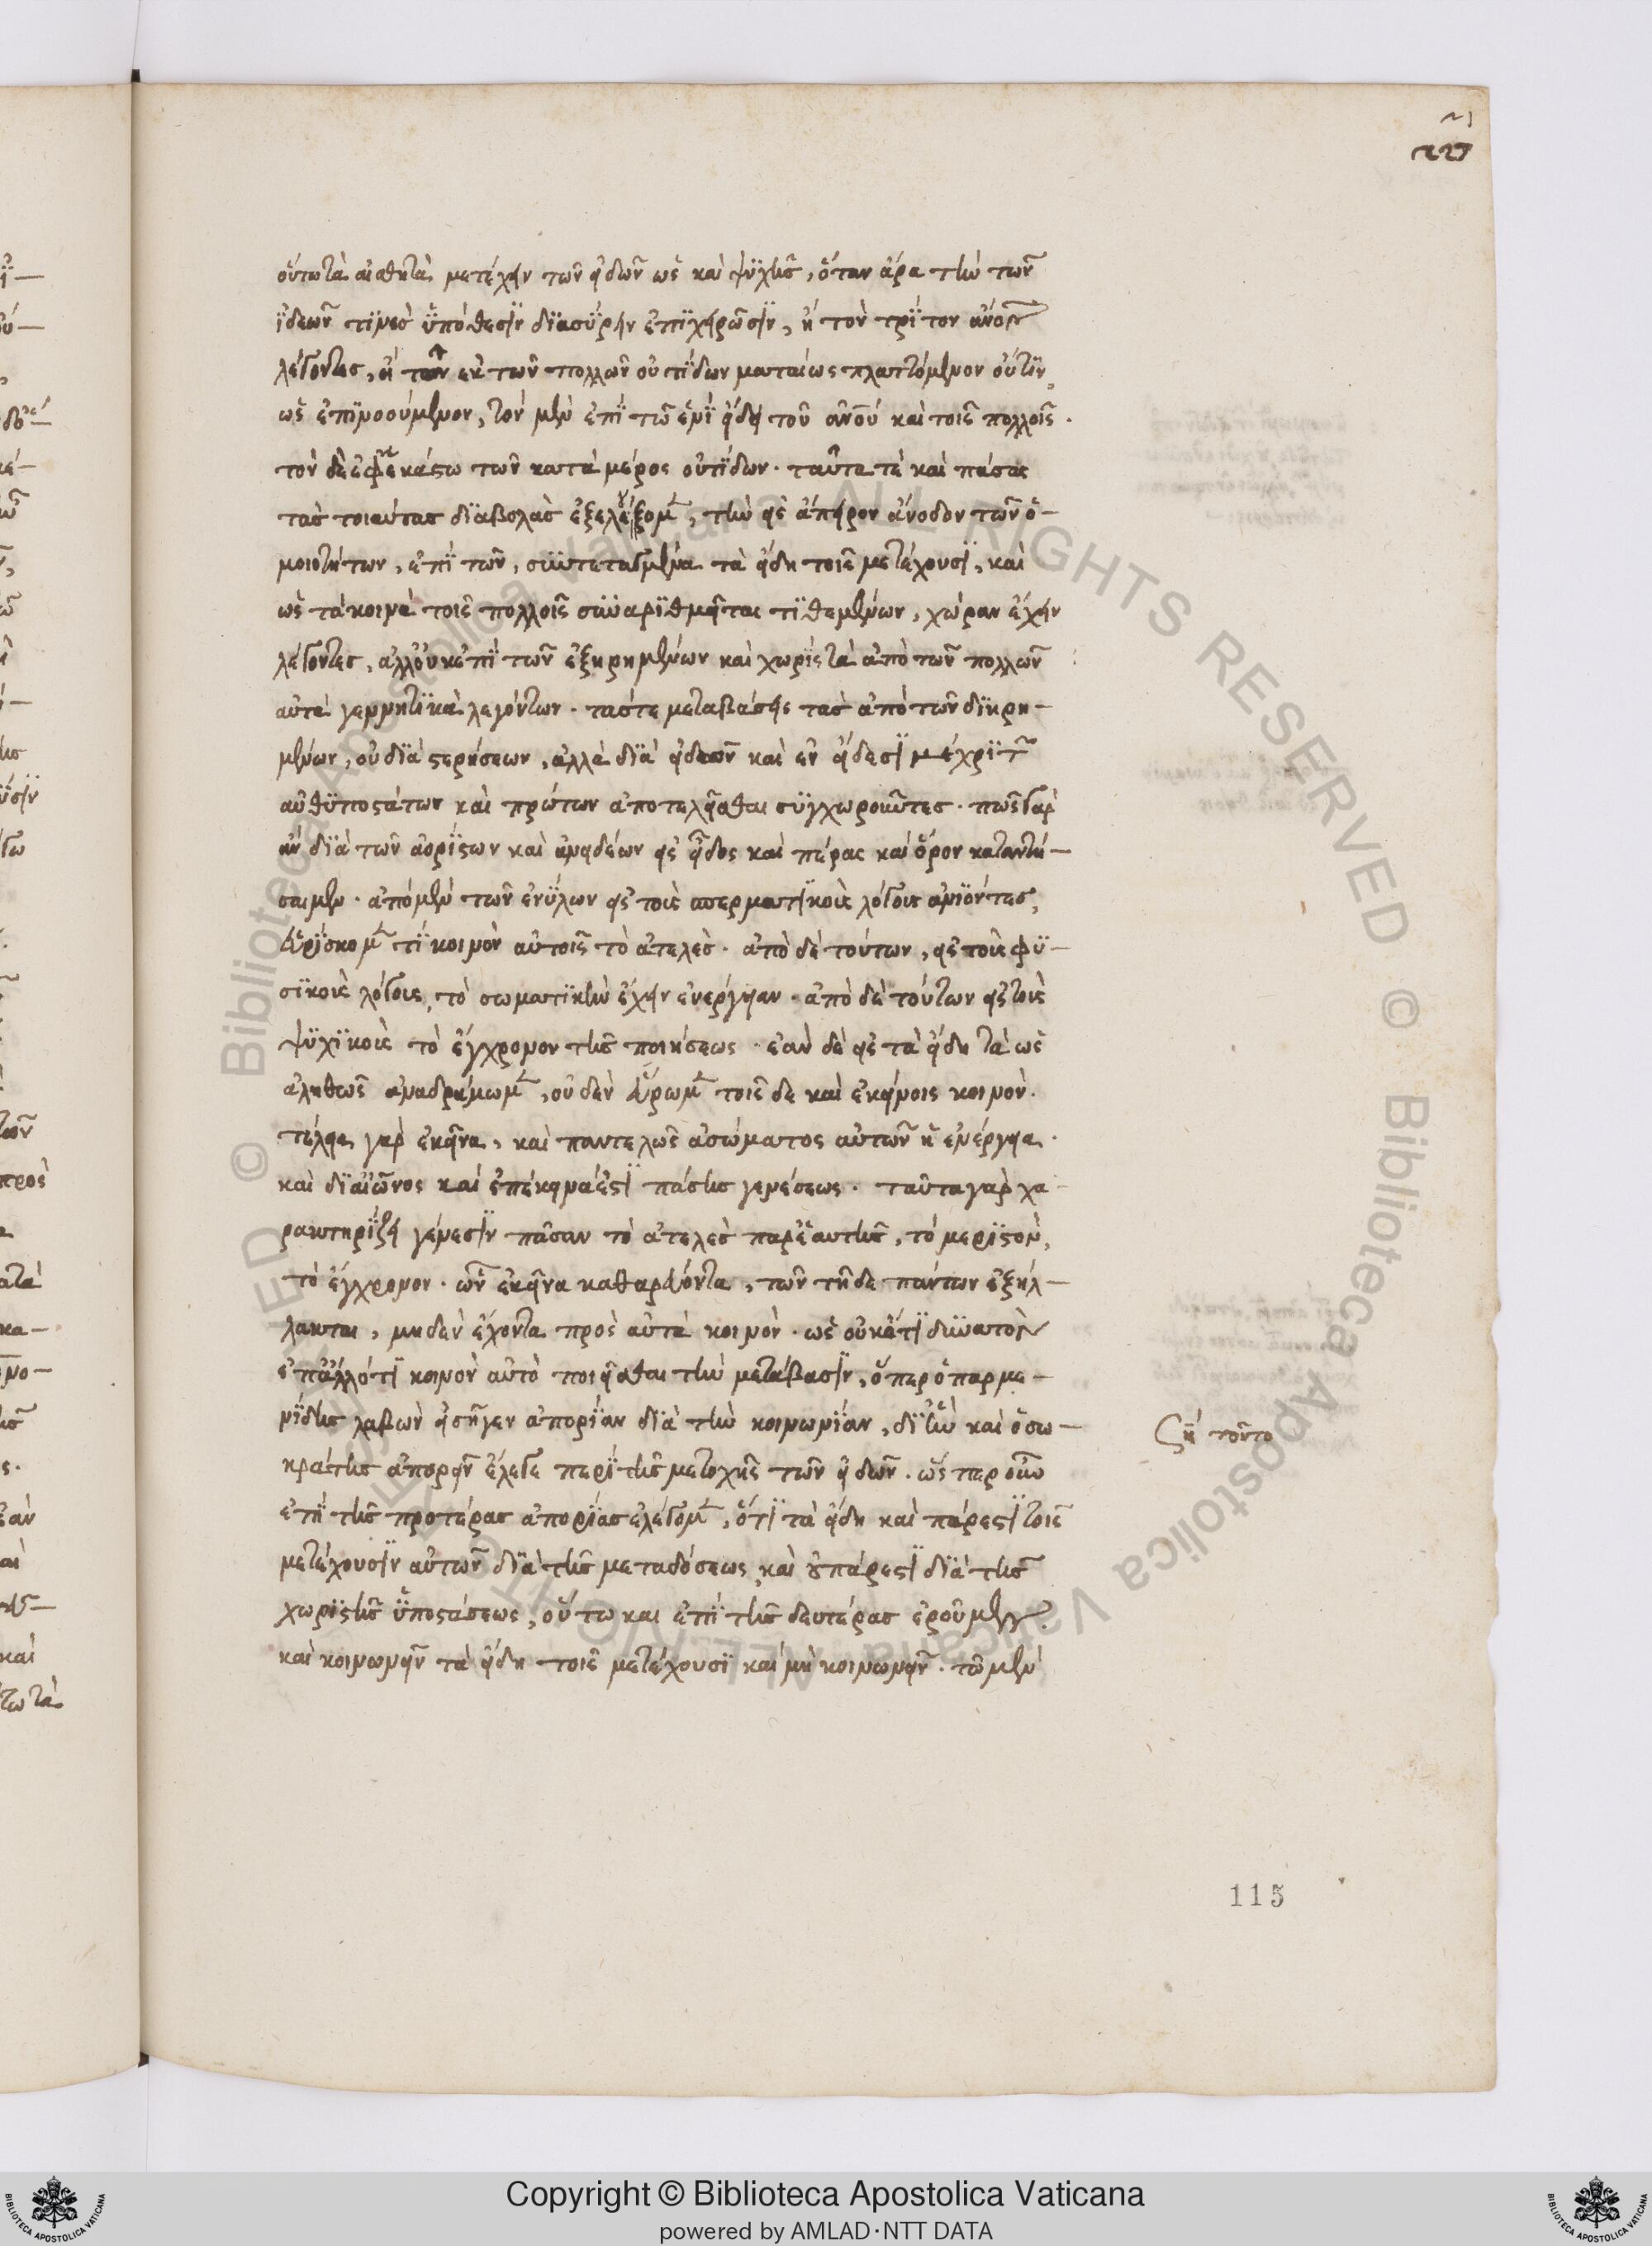 οὕτω τὰ αἰσθητὰ μετέχειν τῶν εἰδῶν ὡς καὶ ψυχῆς, ὅταν ἄρα τὴν τῶν
ἰδεῶν τινὲς ὑπόθεσιν διασύρειν ἐπιχειρῶσιν, ἢ τὸν τρίτον ἄνον
λέγοντες, ἢ τὸν ἐκ τῶν πολλῶν οὐτίδων ματαίως πλαττόμενον οὔτιν,
ὡς ἐπινοούμενον, τὸν μὲν ἐπὶ τῷ ἑνὶ εἴδει τοῦ ἀνοῦ καὶ τοῖς πολλοῖς.
τὸν δὲ ἐφ' ἑκάστω τῶν κατὰ μέρος οὐτίδων. ταῦτα τὲ καὶ πάσας
τὰς τοιαύτας διαβολὰς ἐξελέγξομεν, τὴν εἰς ἄπειρον ἄνοδον τῶν ὁ-
μοιοτήτων, ἐπὶ τῶν, συντεταγμένα τὰ εἴδη τοῖς μετέχουσι, καὶ
ὡς τὰ κοινὰ τοῖς πολλοῖς συναριθμεῖται τιθεμένων, χώραν ἔχειν
λέγοντες, ἀλλ' οὐκ ἐπὶ τῶν ἐξῃρημένων καὶ χωριστὰ ἀπὸ τῶν πολλῶν
αὐτὰ γεννητικὰ λεγόντων. τάς τε μεταβάσεις τὰς ἀπὸ τῶν διῃρη-
μένων, οὐ διὰ στερήσεων, ἀλλὰ διὰ εἰδεων καὶ ἐν εἴδεσι μέχρι τῶν
αὐθυποστάτων καὶ πρώτων ἀποτελεῖσθαι συγχωροῦντες. πῶς γὰρ
ἂν διὰ τῶν ἀορίστων καὶ ἀνειδέων εἰς εἶδος καὶ πέρας καὶ ὅρον καταντή-
σαιμεν. ἀπὸ μὲν τῶν ἐνύλων εἰς τοὺς σπερματικοὺς λόγους ἀνιόντες,
εὑρίσκομεν τί κοινὸν αὐτοῖς τὸ ἀτελές. ἀπὸ δὲ τούτων, εἰς τοὺς φυ-
σικοὺς λόγους, τὸ σωματικὴν ἔχειν ἐνέργειαν. ἀπὸ δὲ τούτων εἰς τοὺς
ψυχικοὺς τὸ ἔγχρονον τῆς ποιήσεως. ἐὰν δὲ εἰς τὰ εἴδη τὰ ὡς
ἀληθῶς ἀναδράμωμεν, οὐδὲν εὕρωμεν τοῖς δε καὶ ἐκείνοις κοινόν.
τέλεια γὰρ ἐκεῖνα, καὶ παντελῶς ἀσώματος αὐτῶν ἡ ἐνέργεια.
καὶ διαιῶνος καὶ ἐπέκεινα ἐστὶ πάσης γενέσεως. ταῦτα γὰρ χα-
ρακτηρίζει γένεσιν πᾶσαν τὸ ἀτελὲς παρ' ἑαυτῆς, τὸ μεριστὸν,
τὸ ἔγχρονον. ὧν ἐκεῖνα καθαρεύοντα, τῶν τῇδε πάντων ἐξήλ-
λακται, μηδὲν ἔχοντα πρὸς αὐτὰ κοινόν. ὡς οὐκ ἔτι δυνατὸν
ἐπ' ἄλλό τι κοινὸν αὐτὸ ποιεῖσθαι τὴν μετάβασιν, ὅπερ ὁ παρμε-
νίδης λαβὼν εἰσῆγεν ἀπορίαν διὰ τὴν κοινωνίαν, δι' ἣν καὶ ὁ σω-
κράτης ἀπορεῖν ἔλεγε περὶ τῆς μετοχῆς τῶν εἰδῶν. ὥσπερ οὖν
ἐπὶ τῆς προτέρας ἀπορίας ἐλέγομεν, ὅτι τὰ εἴδη καὶ πάρεστι τοῖς
μετέχουσιν αὐτῶν διὰ τῆς μεταδόσεως, καὶ οὐ πάρεστι διὰ τῆς
χωριστῆς ὑποστάσεως, οὕτω και ἐπὶ τῆς δευτέρας ἐροῦμεν.
καὶ κοινωνεῖν τὰ εἴδη τοῖς μετέχουσι καὶ μὴ κοινωνεῖν. τῶ μὲν
ζή τοῦτο
115
Copyright © Biblioteca Apostolica Vaticana
powered by AMLAD·NTT DATA